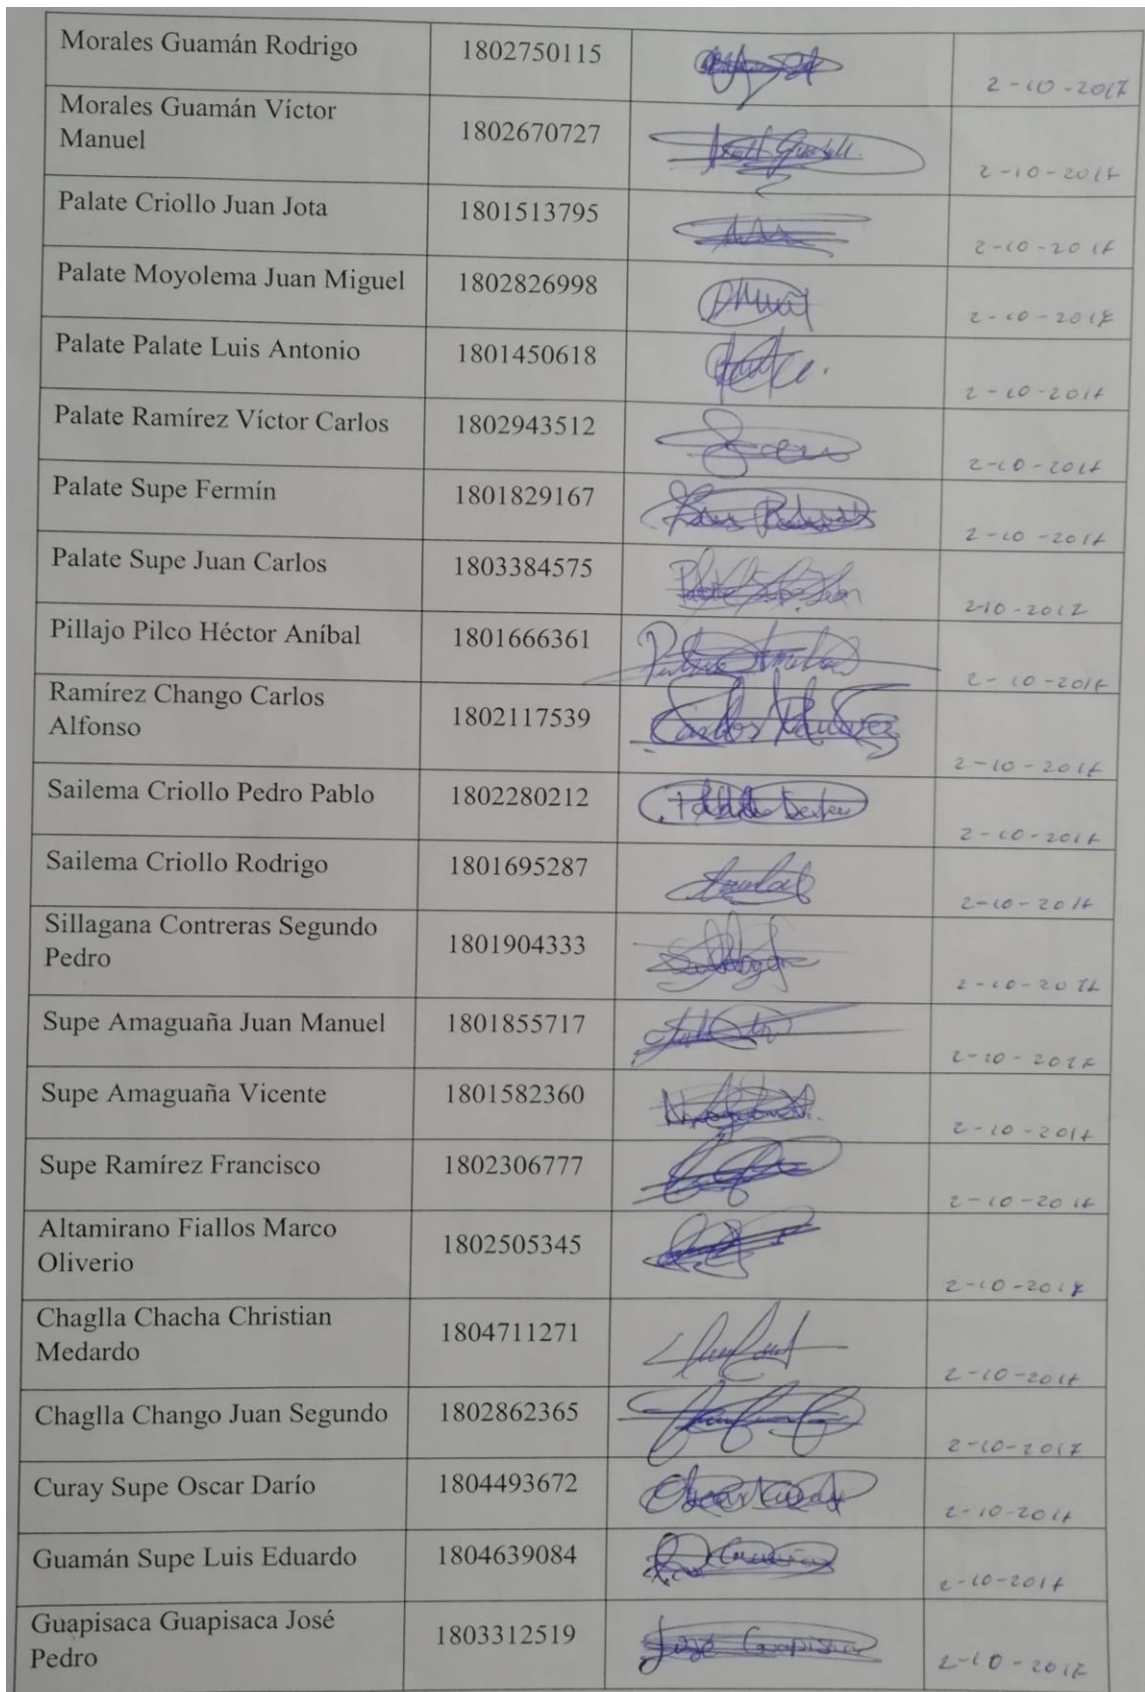 Morales Guamán Rodrigo 1802750115 2-10-2017
Morales Guamán Víctor
Manuel 1802670727 2-10-2017
Palate Criollo Juan Jota 1801513795 2-10-2017
Palate Moyolema Juan Miguel 1802826998 2-10-2017
Palate Palate Luis Antonio 1801450618 2-10-2017
Palate Ramírez Víctor Carlos 1802943512 2-10-2017
Palate Supe Fermín 1801829167 2-10-2017
Palate Supe Juan Carlos 1803384575 2-10-2017
Pillajo Pilco Héctor Aníbal 1801666361 2-10-2017
Ramírez Chango Carlos
Alfonso 1802117539 2-10-2017
Sailema Criollo Pedro Pablo 1802280212 2-10-2017
Sailema Criollo Rodrigo 1801695287 2-10-2017
Sillagana Contreras Segundo
Pedro 1801904333 2-10-2017
Supe Amaguaña Juan Manuel 1801855717 2-10-2017
Supe Amaguaña Vicente 1801582360 2-10-2017
Supe Ramírez Francisco 1802306777 2-10-2017
Altamirano Fiallos Marco
Oliverio 1802505345 2-10-2017
Chaglla Chacha Christian
Medardo 1804711271 2-10-2017
Chaglla Chango Juan Segundo 1802862365 2-10-2017
Curay Supe Oscar Darío 1804493672 2-10-2017
Guamán Supe Luis Eduardo 1804639084 2-10-2017
Guapisaca Guapisaca José
Pedro 1803312519 2-10-2017